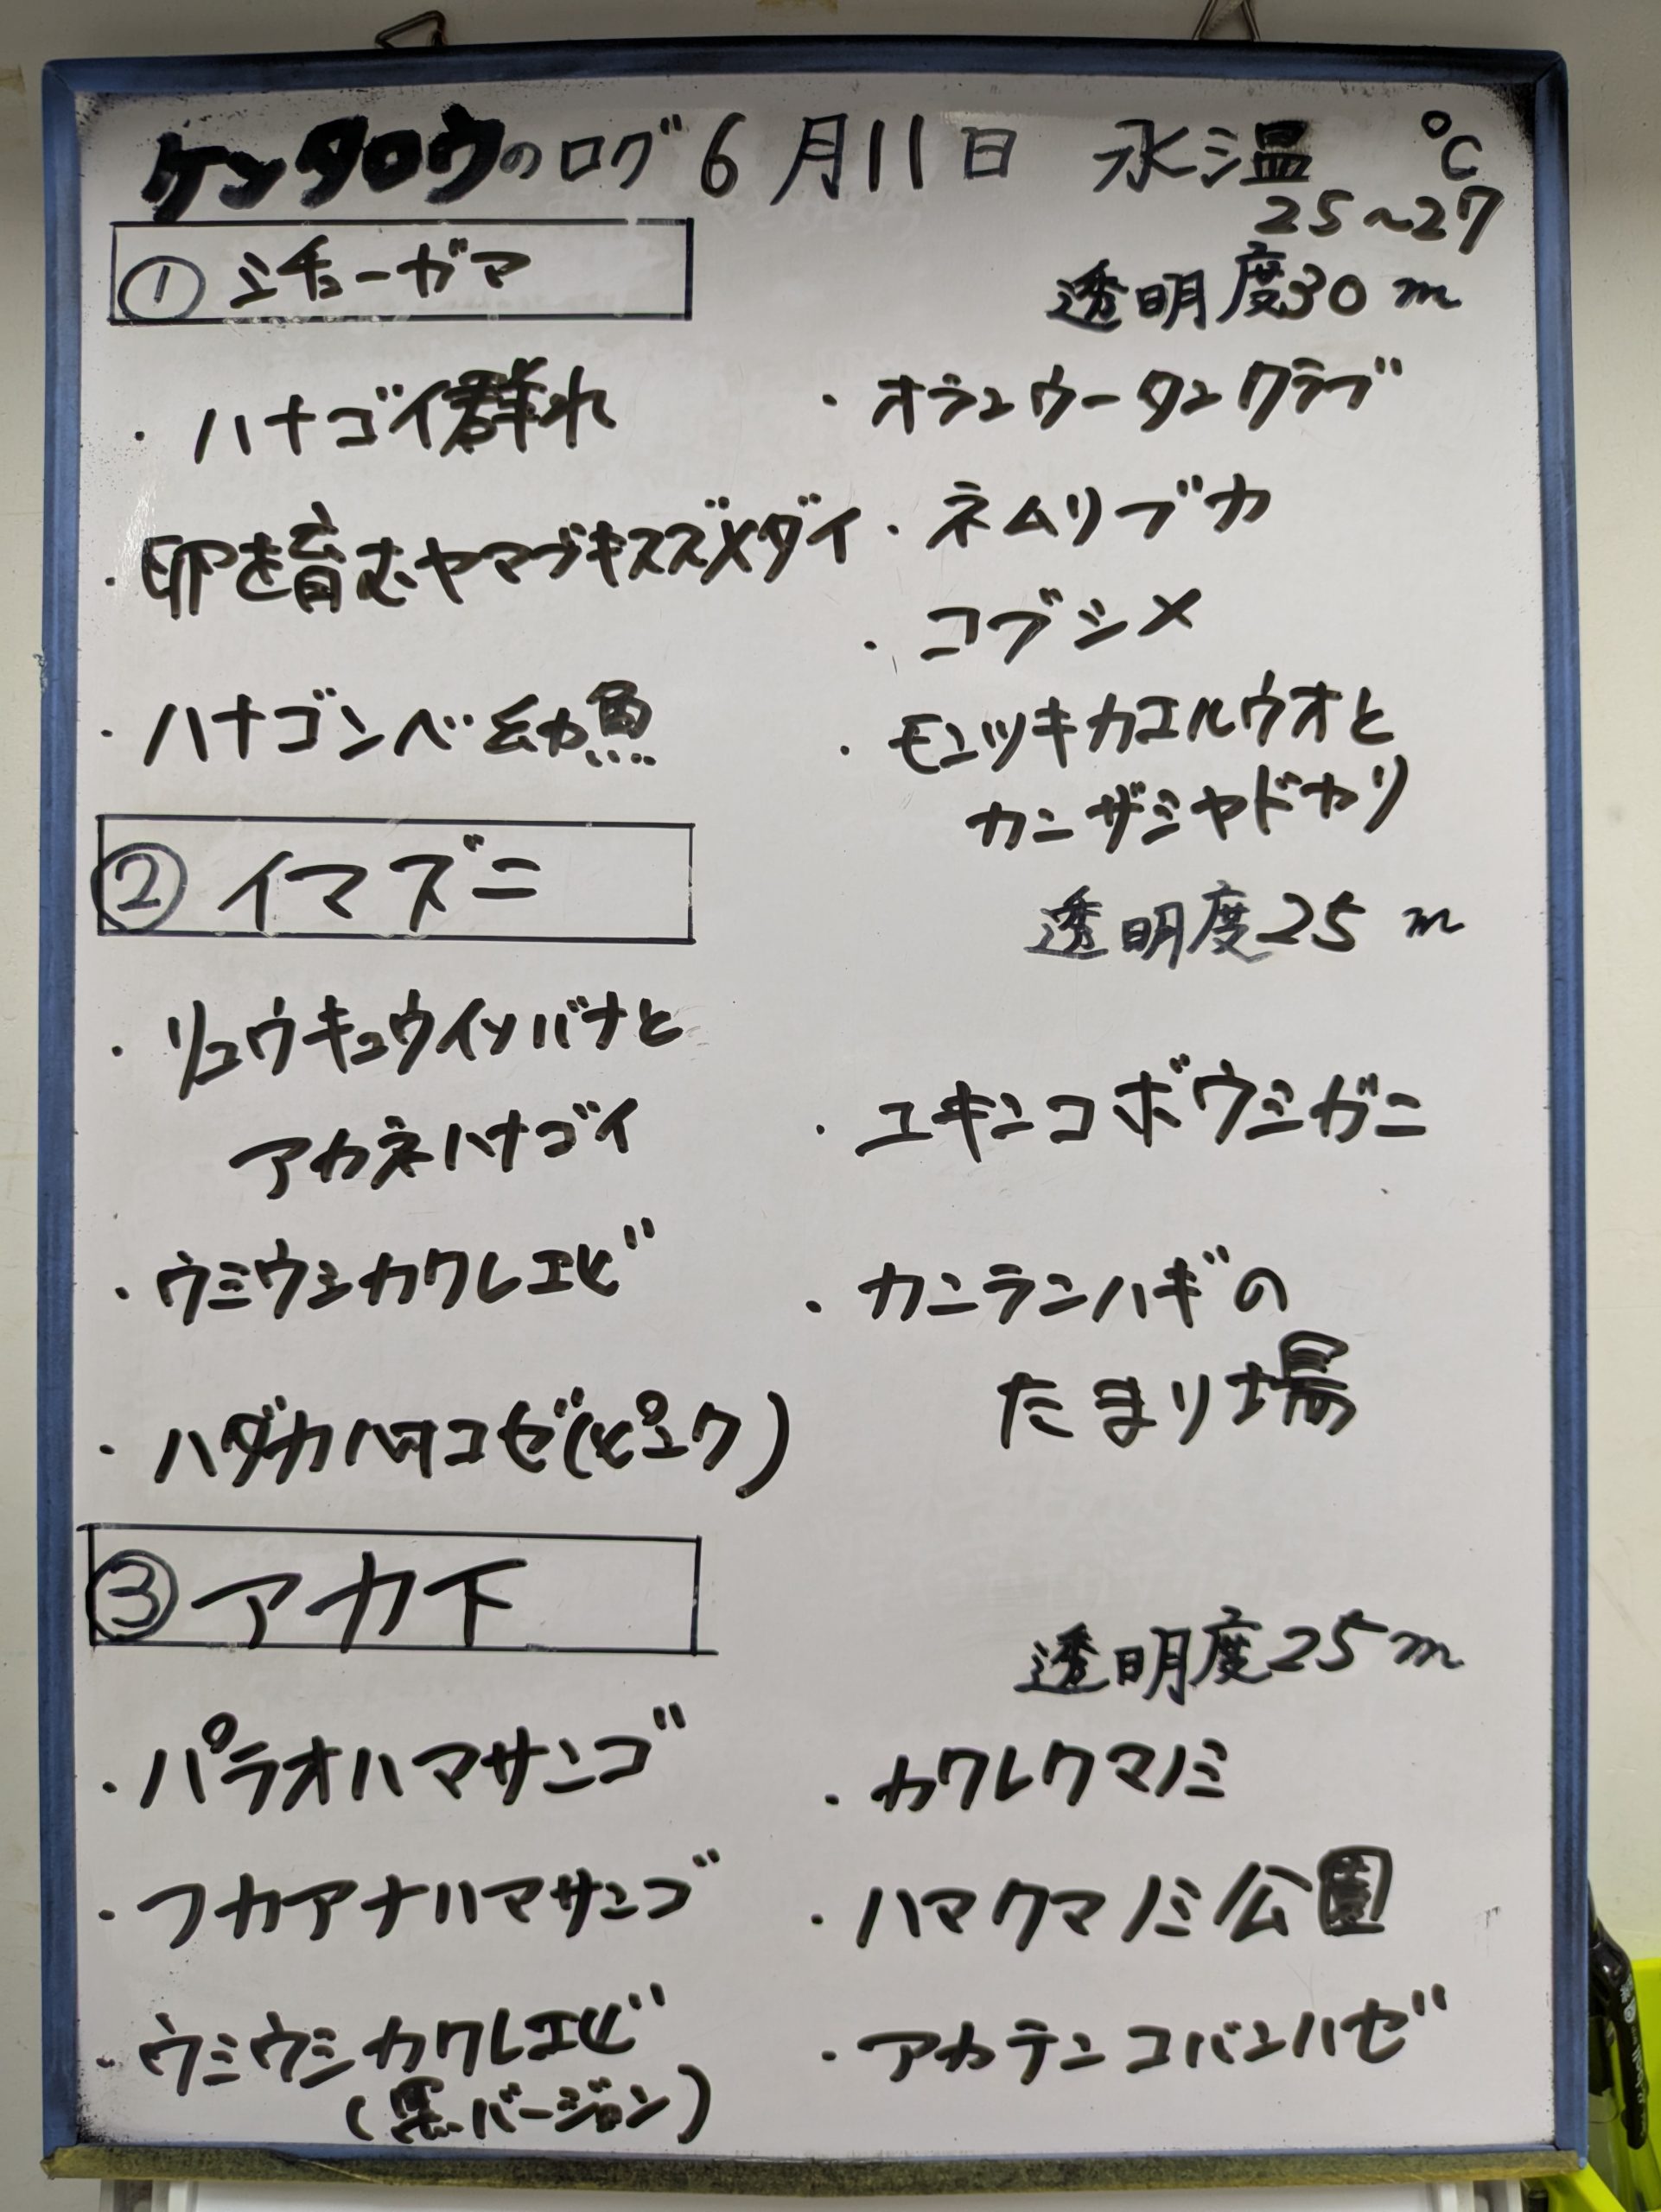 ケンタロウのログ 6月11日 水温 ℃
25~27
① ミチョーガマ
透明度30m
・ハナゴイ群れ
・卵を育むヤマブキスズメダイ
・ハナゴンベ幼魚
・オランウータンクラブ
・ネムリブカ
・コブシメ
・モンツキカエルウオと
カンザシヤドカリ
② イマズニ
透明度25m
・リュウキュウイソバナと
アカネハナゴイ
・ウミウシカクレエビ
・ハダカハオコゼ(ピンク)
・ユキンコボウシガニ
・カンランハギの
たまり場
③ アカ下
透明度25m
・パラオハマサンゴ
・フカアナハマサンゴ
・ウミウシカクレエビ
(黒バージョン)
・カクレクマノミ
・ハマクマノミ公園
・アカテンコバンハゼ